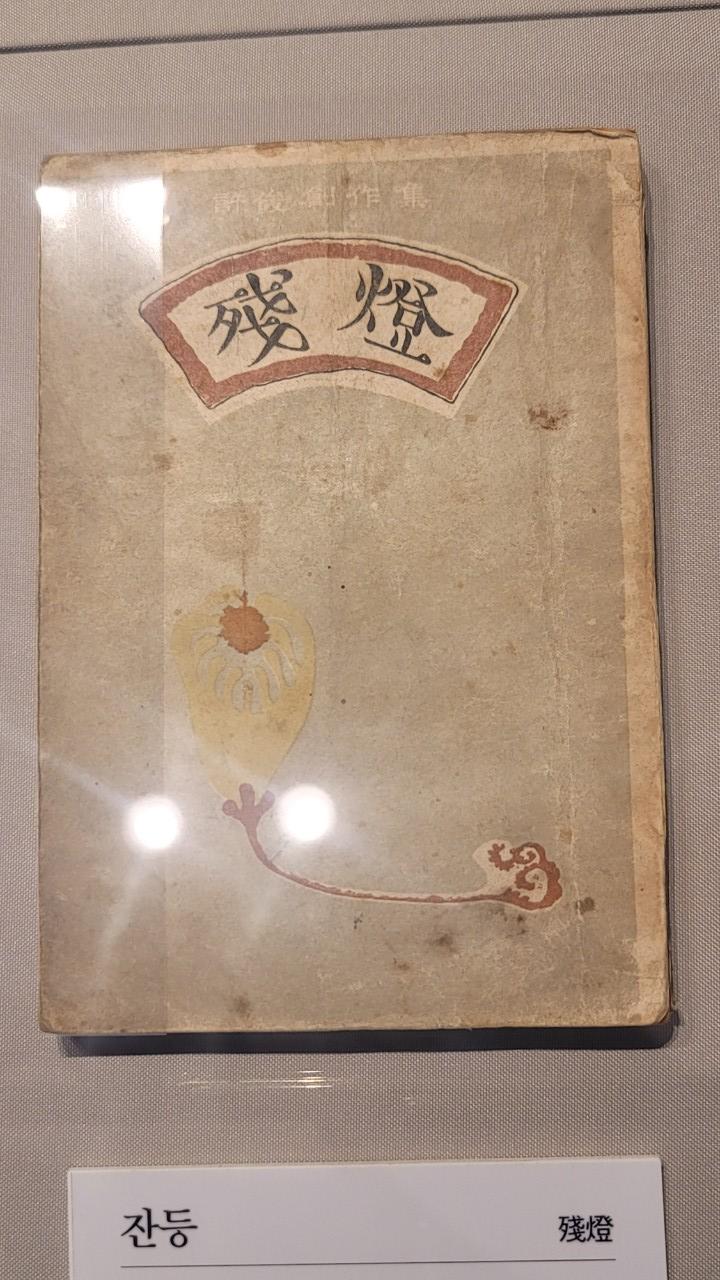 許俊創作集
殘燈
잔등 殘燈